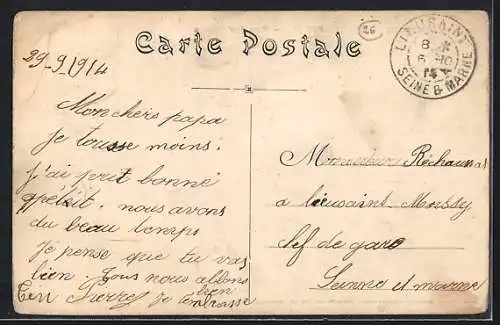 Carte Postale
26
LIEUSAINT
8 *
6 - 10
14
SEINE & MARNE
29_9_1914
Mon chers papa
Je tousse moins.
j'ai prit bonné
apétit. nous avons
du beau temps
Je pense que tu vas
bien. Tous nous allons
bien
Pierre Je t'embrasse
Monsieur Réchaussat
à lieusaint Moissy
chef de gare
Seinne et marne